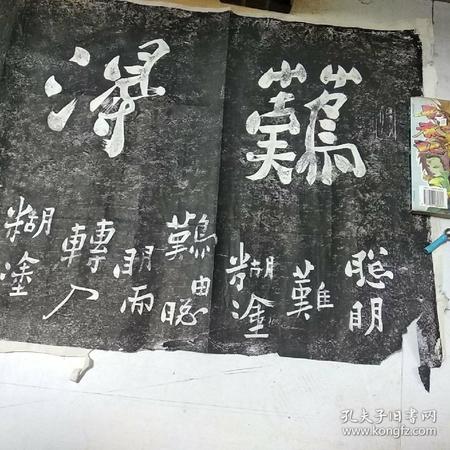 難得
聰明
難
糊塗
難由聰
明而
轉入
糊塗
孔夫子旧书网
www.kongfz.com